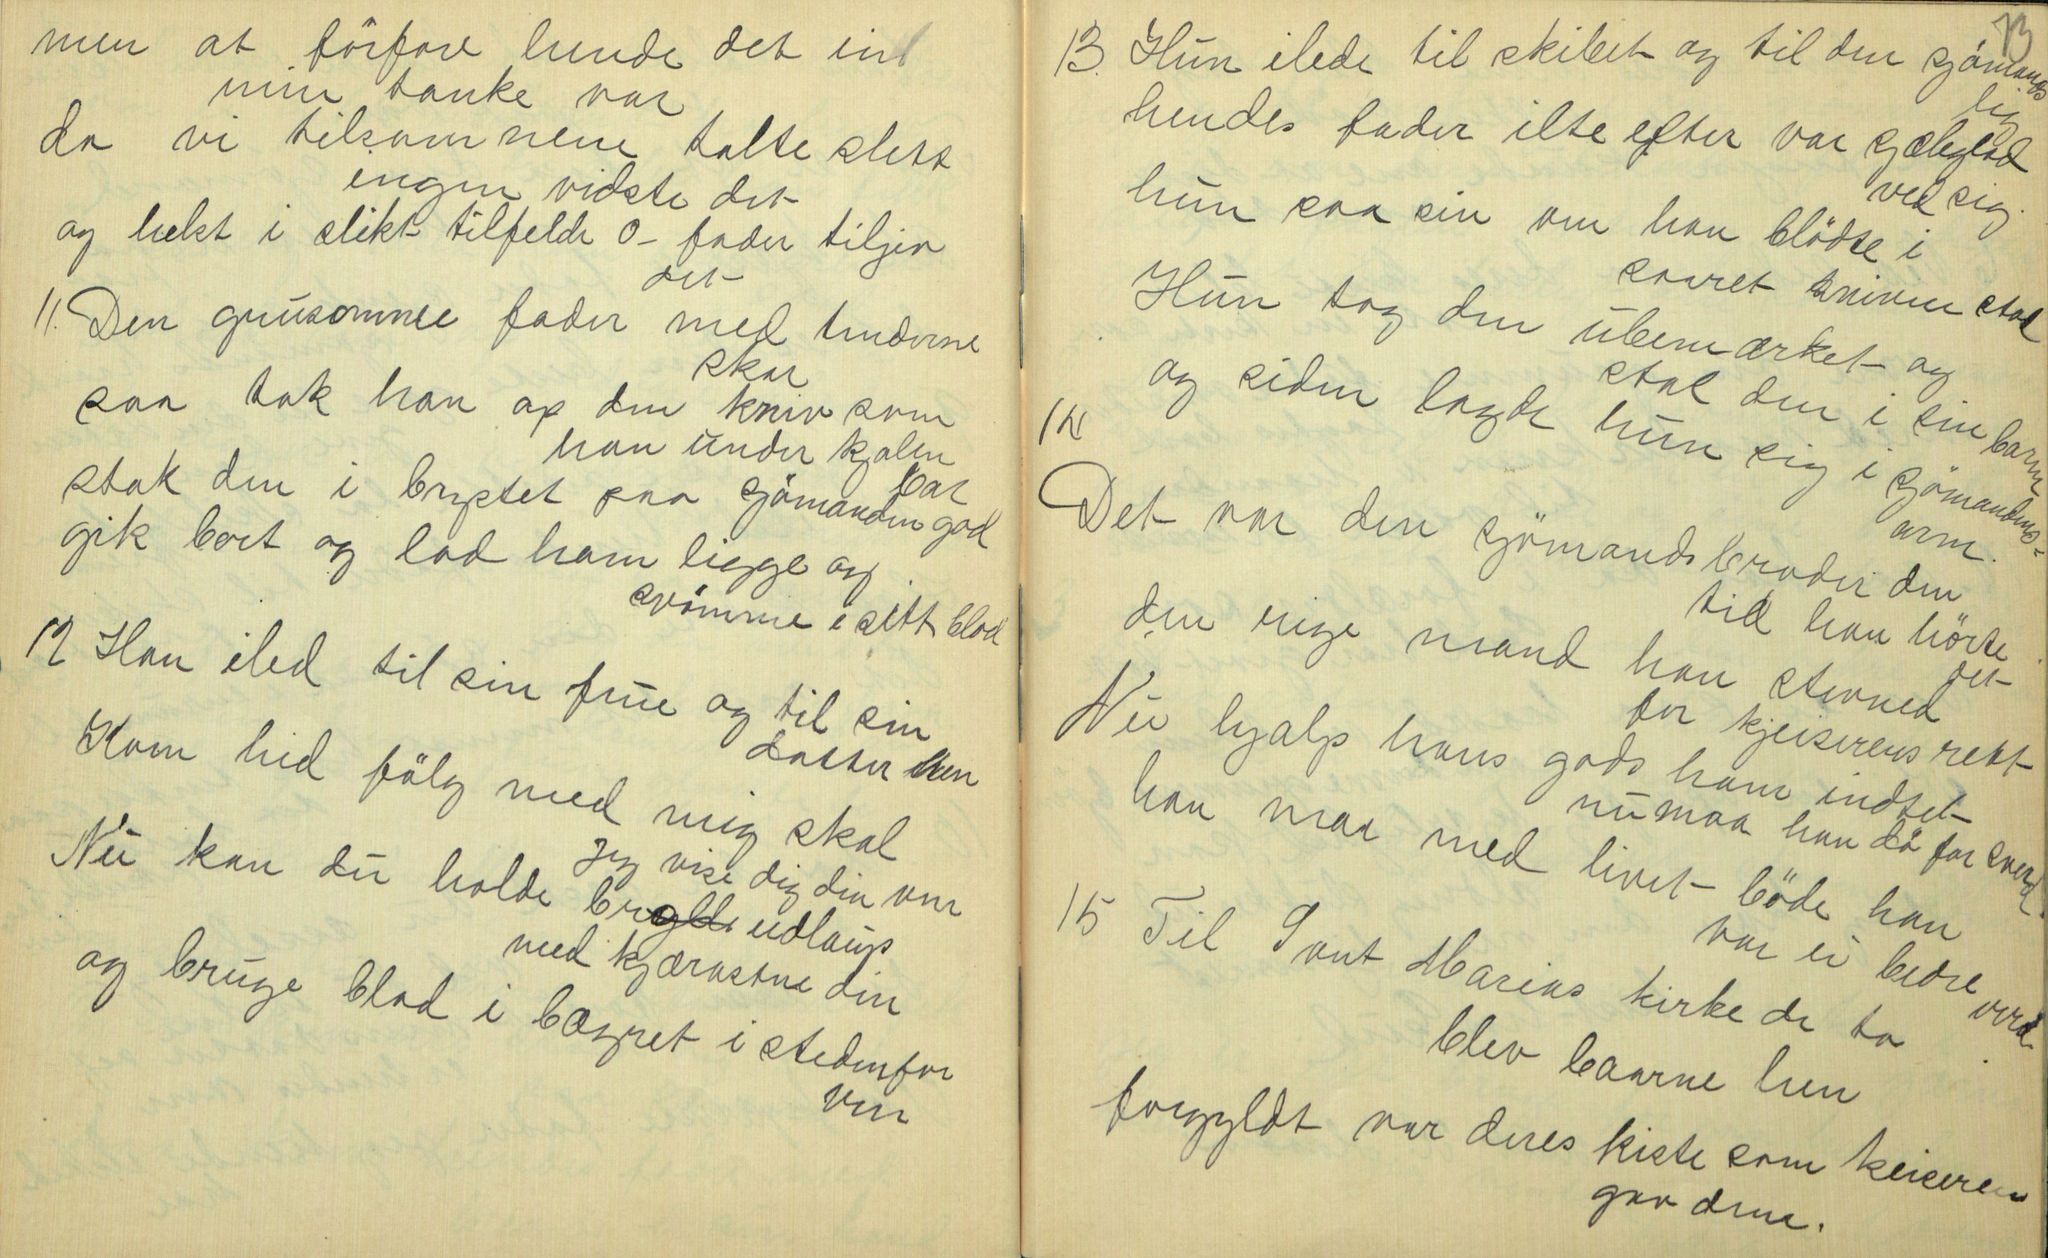 men at förföre hende det in
min tanke var
da vi tilsammene talte slett
ingen vidste det
og helst i slikt tilfelde o- fader tilgiv
det
11. Den grusomme fader med tenderne
skar
saa tok han op den kniv som
han under kjolen
bar
stak den i brystet paa sjömanden god
gik bort og lod ham ligge og
svömme i sitt blod
12 Han iled til sin frue og til sin
datter hen
Kom hid fölg med mig skal
jeg vise dig din ven
Nu kan du holde udlaup
med kjærastne din
og bruge blod i bægret i stedenfor
vin
13
13. Hun ilede til skibet og til den sjömands
lig
hendes fader ilte efter var sjæleglad
ved sig.
hun saa sin ven han blödte i
saaret kniven stod
Hun tog den ubemærket og
stak den i sin barm
og siden lagde hun sig i sjömandens-
arm.
14
Det var den sjömands broder den
tid han hörte
det
den rige mand han stevned
for kjeiserens rett
Nu hjalp hans gods ham indtet
nu maa han dö for sverd
han maa med livet böde han
var ei bedre
verd.
15 Til Sant Marias kirke de to
blev baarne hen
forgyldt var deres kiste som keiseren
gav dem.